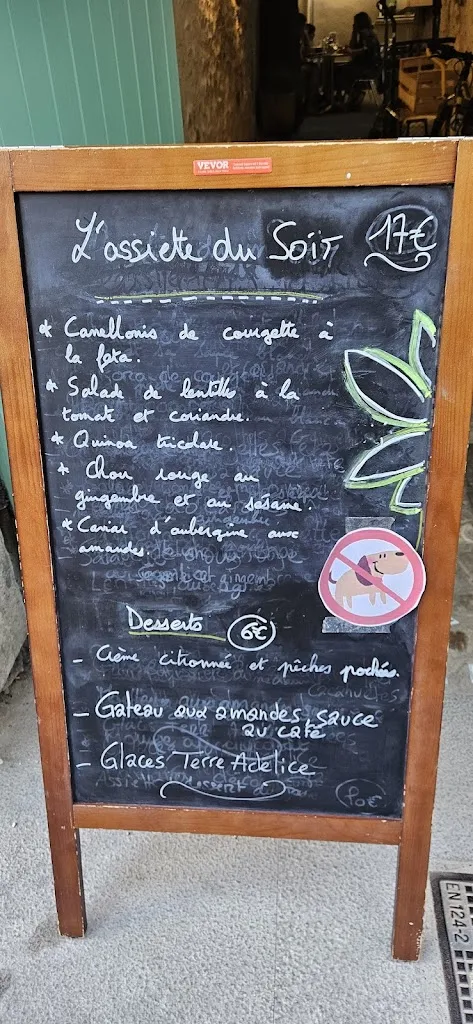 VEVOR
L'assiette du Soir 17€
* Canellonis de courgette à
la feta.
* Salade de lentilles à la
tomate et coriandre.
* Quinoa tricolore.
* Chou rouge au
gingembre et au sésame.
* Caviar d'aubergine aux
amandes.
Desserts 6€
- Crème citronnée et pêches pochées.
- Gateau aux amandes, sauce
au café
- Glaces Terre Adelice
EN 124-2